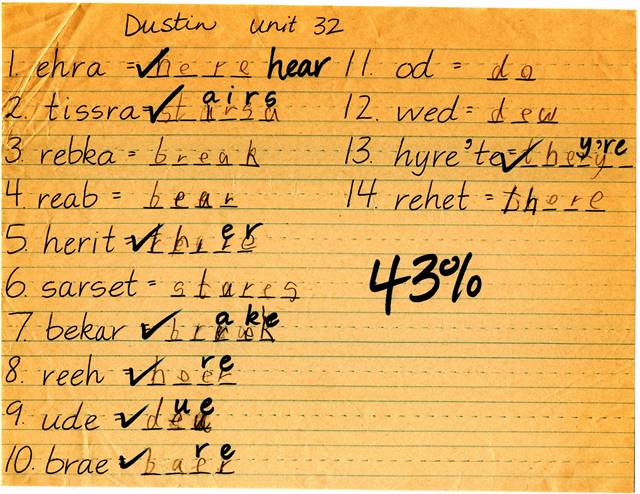 Dustin unit 32
1. ehra = here hear
2. tissra = st airs
3. rebka = break
4. reab = bear
5. herit = thi er
6. sarset = stares
7. bekar br ake
8. reeh = he re
9. ude = d ue
10. brae ba re
11. od = do
12. wed = dew
13. hyre'te = the y're
14. rehet = there
43%